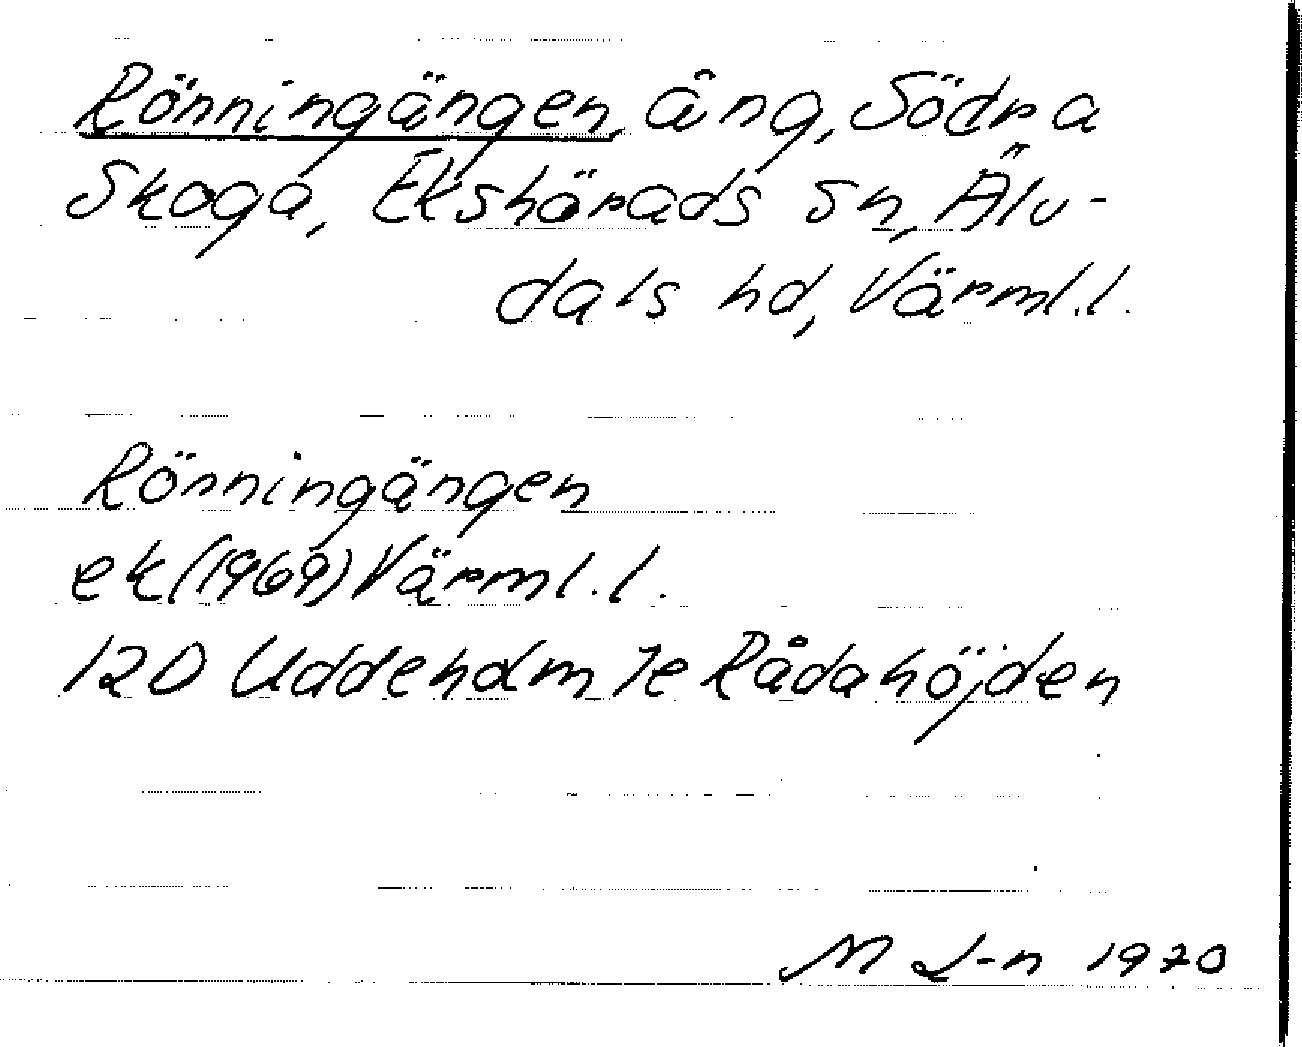 Rönningängen, äng, Södra
Skoga, Ekshärads sn, Älv-
dals hd, Värml. l.
Rönningängen
ek (1969) Värml. l.
12D Uddeholm 7e Rådahöjden
M L-n 1970